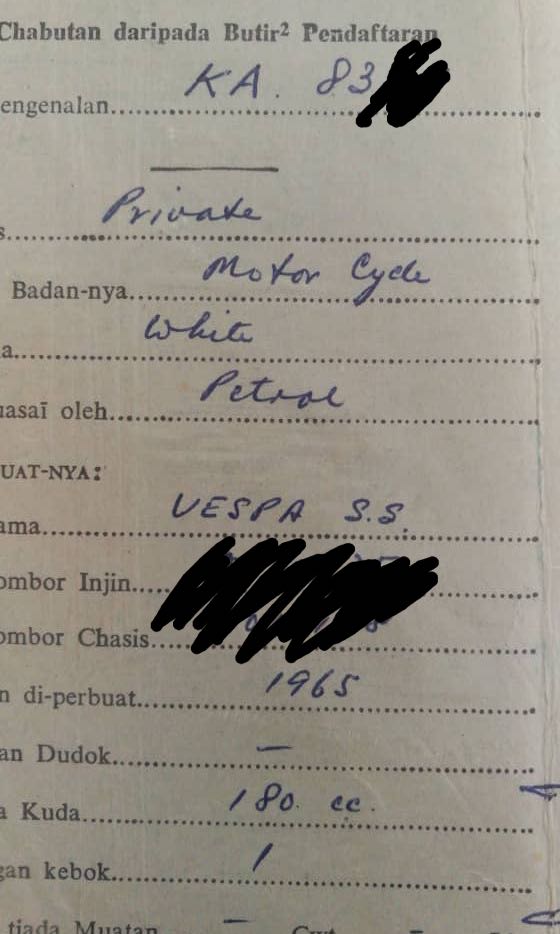 Chabutan daripada Butir² Pendaftaran
engenalan KA. 83
s. Private
Badan-nya Motor Cycle
a. White
uasaï oleh Petrol
UAT-NYA:
ama VESPA S.S.
ombor Injin
ombor Chasis
n di-perbuat 1965
an Dudok —
a Kuda 180. cc.
gan kebok 1
tiada Muatan —